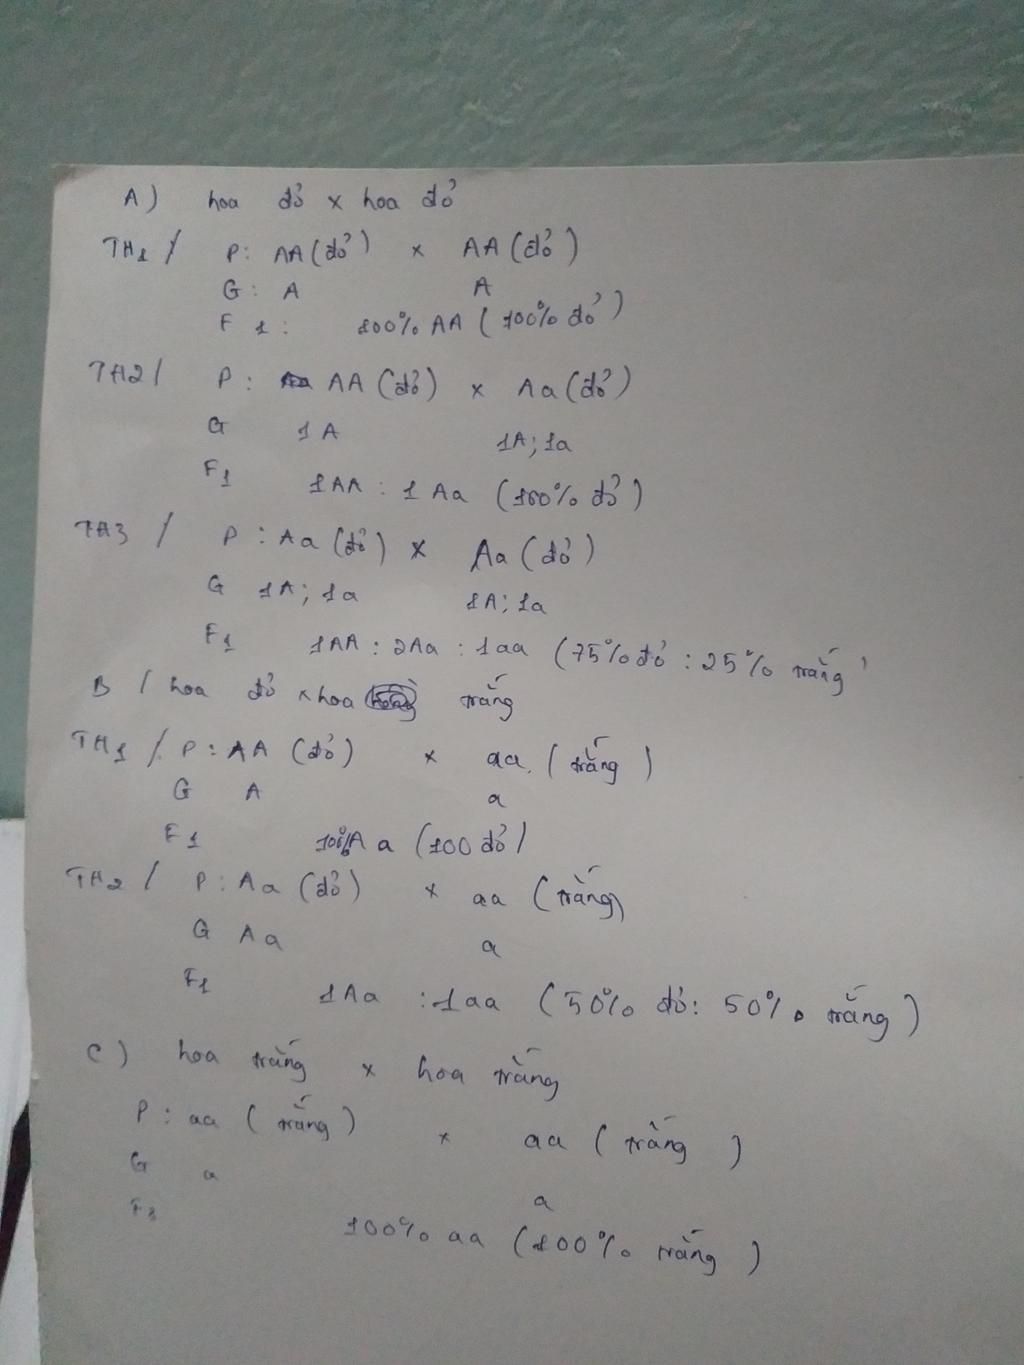 A) hoa đỏ x hoa đỏ
TH1 / P: AA (đỏ) x AA (đỏ)
G: A A
F1: 100% AA (100% đỏ)
TH2 / P: AA (đỏ) x Aa (đỏ)
G 1A 1A; 1a
F1 1AA : 1Aa (100% đỏ)
TH3 / P: Aa (đỏ) x Aa (đỏ)
G 1A; 1a 1A; 1a
F1 1AA : 2Aa : 1aa (75% đỏ : 25% trắng)
B / hoa đỏ x hoa trắng
TH1 / P: AA (đỏ) x aa (trắng)
G A a
F1 100% Aa (100 đỏ)
TH2 / P: Aa (đỏ) x aa (trắng)
G Aa a
F1 1Aa : 1aa (50% đỏ: 50% trắng)
C) hoa trắng x hoa trắng
P: aa (trắng) x aa (trắng)
G a a
F1 100% aa (100% trắng)